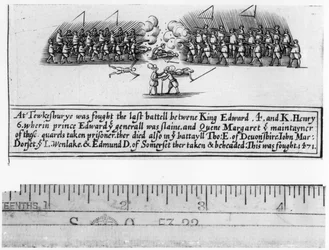 At Tewkesburye was fought the last battell betwene King Edward .4. and K. Henry
6. wherin prince Edward ẏ generall was slaine, and Quene Margaret ẏ maintayner
of thys quarels taken prisoner, ther died also in ẏ battayll Tho: E. of Devonshire. Iohn Mar:
Dorset, ẏ L. Wenlake, & Edmund D. of Somerset ther taken & beheaded. This was fought. 1471.
1 2 3 4
S 53 22